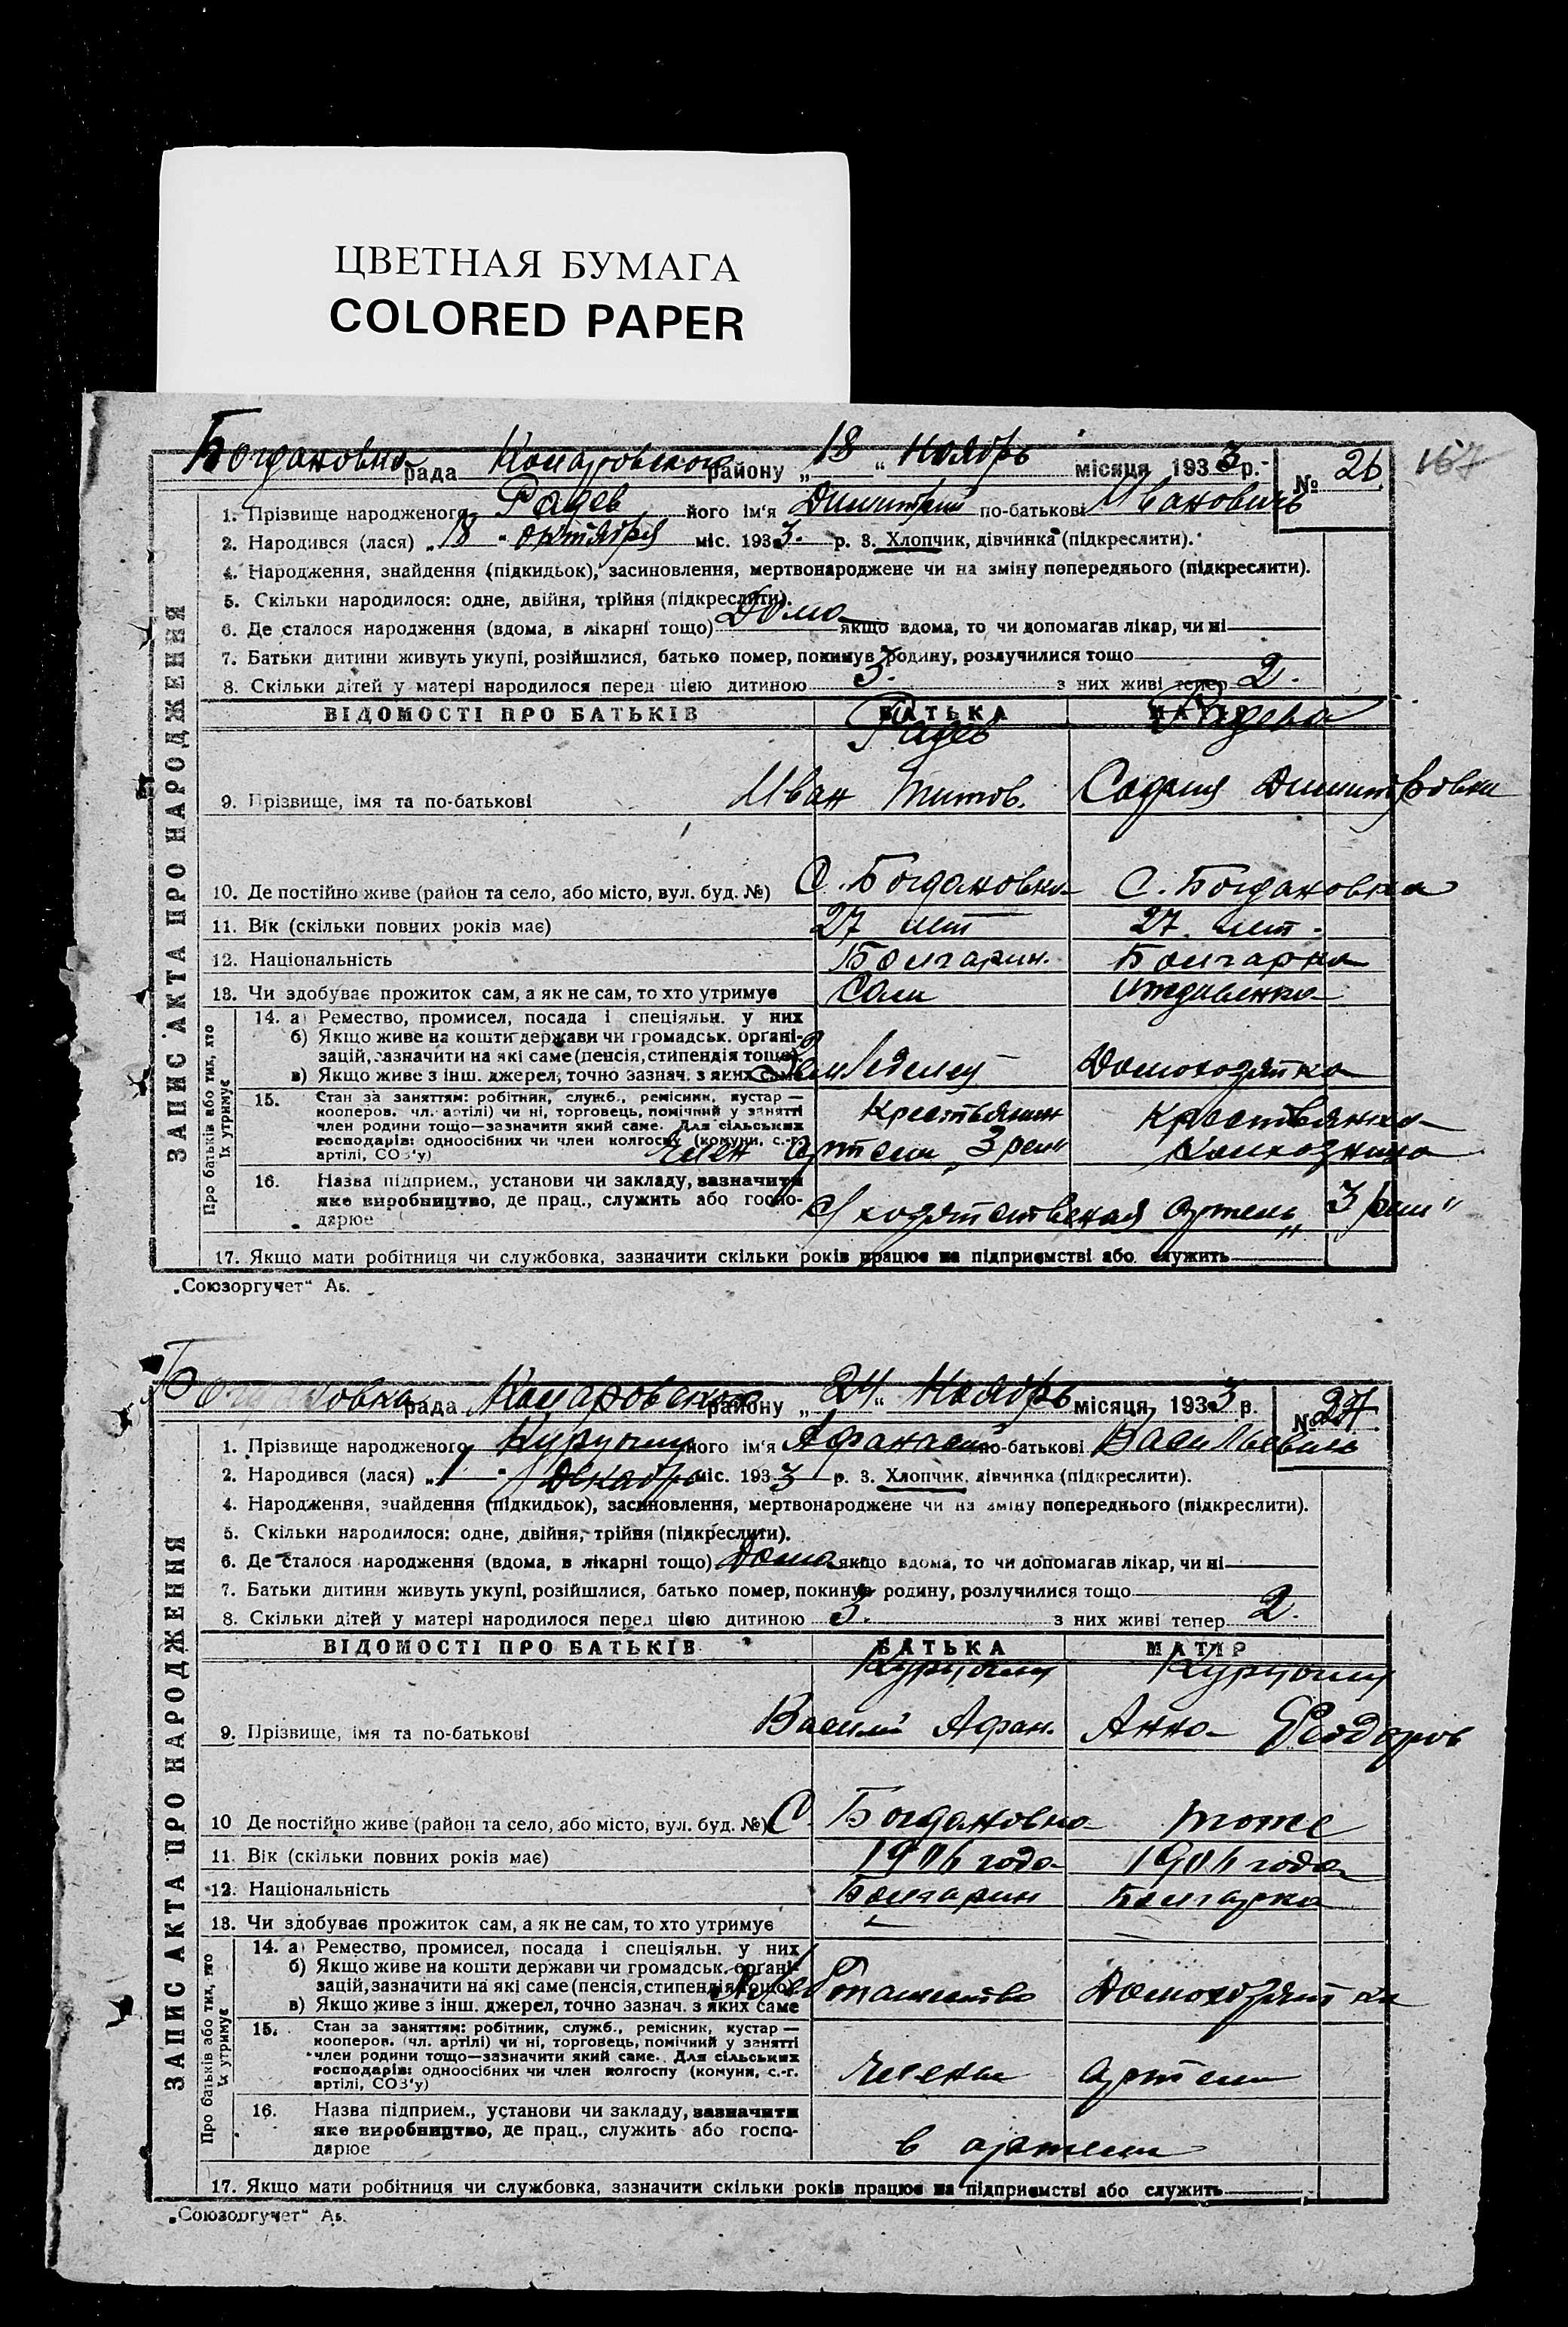 ЦВЕТНАЯ БУМАГА
COLORED PAPER
Богдановка рада Комаровского району „18“ Ноябрь місяця, 1933 р. № 26 167
1. Прізвище народженого Радев його ім'я Димитрий по-батькові Иванович
2. Народився (лася) „18“ октября міс. 1933 р. 3. Хлопчик, дівчинка (підкреслити).
4. Народження, знайдення (підкидьок), засиновлення, мертвонароджене чи на зміну попереднього (підкреслити).
5. Скільки народилося: одне, двійня, трійня (підкреслити).
6. Де сталося народження (вдома, в лікарні тощо) Дома якщо вдома, то чи допомагав лікар, чи ні
7. Батьки дитини живуть укупі, розійшлися, батько помер, покинув родину, розлучилися тощо
8. Скільки дітей у матері народилося перед цією дитиною 3. з них живі тепер 2.
ВІДОМОСТІ ПРО БАТЬКІВ БАТЬКА МАТІР
Радев Радева
9. Прізвище, імя та по-батькові Иван Титов. София Димитровна
10. Де постійно живе (район та село, або місто, вул. буд. №) С. Богдановка С. Богдановка
11. Вік (скільки повних років має) 27 лет 27 лет.
12. Національність Болгарин. Болгарка
13. Чи здобуває прожиток сам, а як не сам, то хто утримує Сам Иждивенка
ЗАПИС АКТА ПРО НАРОДЖЕННЯ
Про батьків або тих, хто їх утримує
14. а) Ремество, промисел, посада і спеціяльн. у них
б) Якщо живе на кошти держави чи громадськ. органі-
зацій, зазначити на які саме (пенсія, стипендія тощо)
в) Якщо живе з інш. джерел, точно зазнач. з яких саме Земледелец Домохозяйка
15. Стан за заняттям: робітник, служб., ремісник, кустар —
кооперов. чл. артілі) чи ні, торговець, помічний у занятті
член родини тощо—зазначити який саме. Для сільських Крестьянин Крестьянка
господарів: одноосібних чи член колгоспу (комуни, с.-г.
артілі, СОЗ'у) Член артели „3 реш“ Колхозница
16. Назва підприєм., установи чи закладу, зазначити
яке виробництво, де прац., служить або госпо-
дарює С/хозяйственная артель „3 реш“
17. Якщо мати робітниця чи службовка, зазначити скільки років працює на підприємстві або служить
„Союзоргучет“ Аб.
Богдановка рада Комаровского району „24“ Ноябрь місяця, 1933 р. № 27
1. Прізвище народженого його ім'я Афанасий по-батькові Васильевич
2. Народився (лася) „1“ Декабрь міс. 1933 р. 3. Хлопчик, дівчинка (підкреслити).
4. Народження, знайдення (підкидьок), засиновлення, мертвонароджене чи на зміну попереднього (підкреслити).
5. Скільки народилося: одне, двійня, трійня (підкреслити).
6. Де сталося народження (вдома, в лікарні тощо) Дома якщо вдома, то чи допомагав лікар, чи ні
7. Батьки дитини живуть укупі, розійшлися, батько помер, покинув родину, розлучилися тощо
8. Скільки дітей у матері народилося перед цією дитиною 3. з них живі тепер 2.
ВІДОМОСТІ ПРО БАТЬКІВ БАТЬКА МАТІР
9. Прізвище, імя та по-батькові Василий Афан. Анна Феодоров
10 Де постійно живе (район та село, або місто, вул. буд. №) С. Богдановка тоже
11. Вік (скільки повних років має) 1906 года 1906 года
12. Національність Болгарин Болгарка
13. Чи здобуває прожиток сам, а як не сам, то хто утримує
ЗАПИС АКТА ПРО НАРОДЖЕННЯ
Про батьків або тих, хто їх утримує
14. а) Ремество, промисел, посада і спеціяльн. у них
б) Якщо живе на кошти держави чи громадськ. органі-
зацій, зазначити на які саме (пенсія, стипендія тощо) Хлебопашество Домохозяйка
в) Якщо живе з інш. джерел, точно зазнач. з яких саме
15. Стан за заняттям: робітник, служб., ремісник, кустар —
кооперов. (чл. артілі) чи ні, торговець, помічний у занятті
член родини тощо—зазначити який саме. Для сільських
господарів: одноосібних чи член колгоспу (комуни, с.-г. Члены артели
артілі, СОЗ'у)
16. Назва підприєм., установи чи закладу, зазначити
яке виробництво, де прац., служить або госпо-
дарює в артели
17. Якщо мати робітниця чи службовка, зазначити скільки років працює на підприємстві або служить
„Союзоргучет“ Аб.